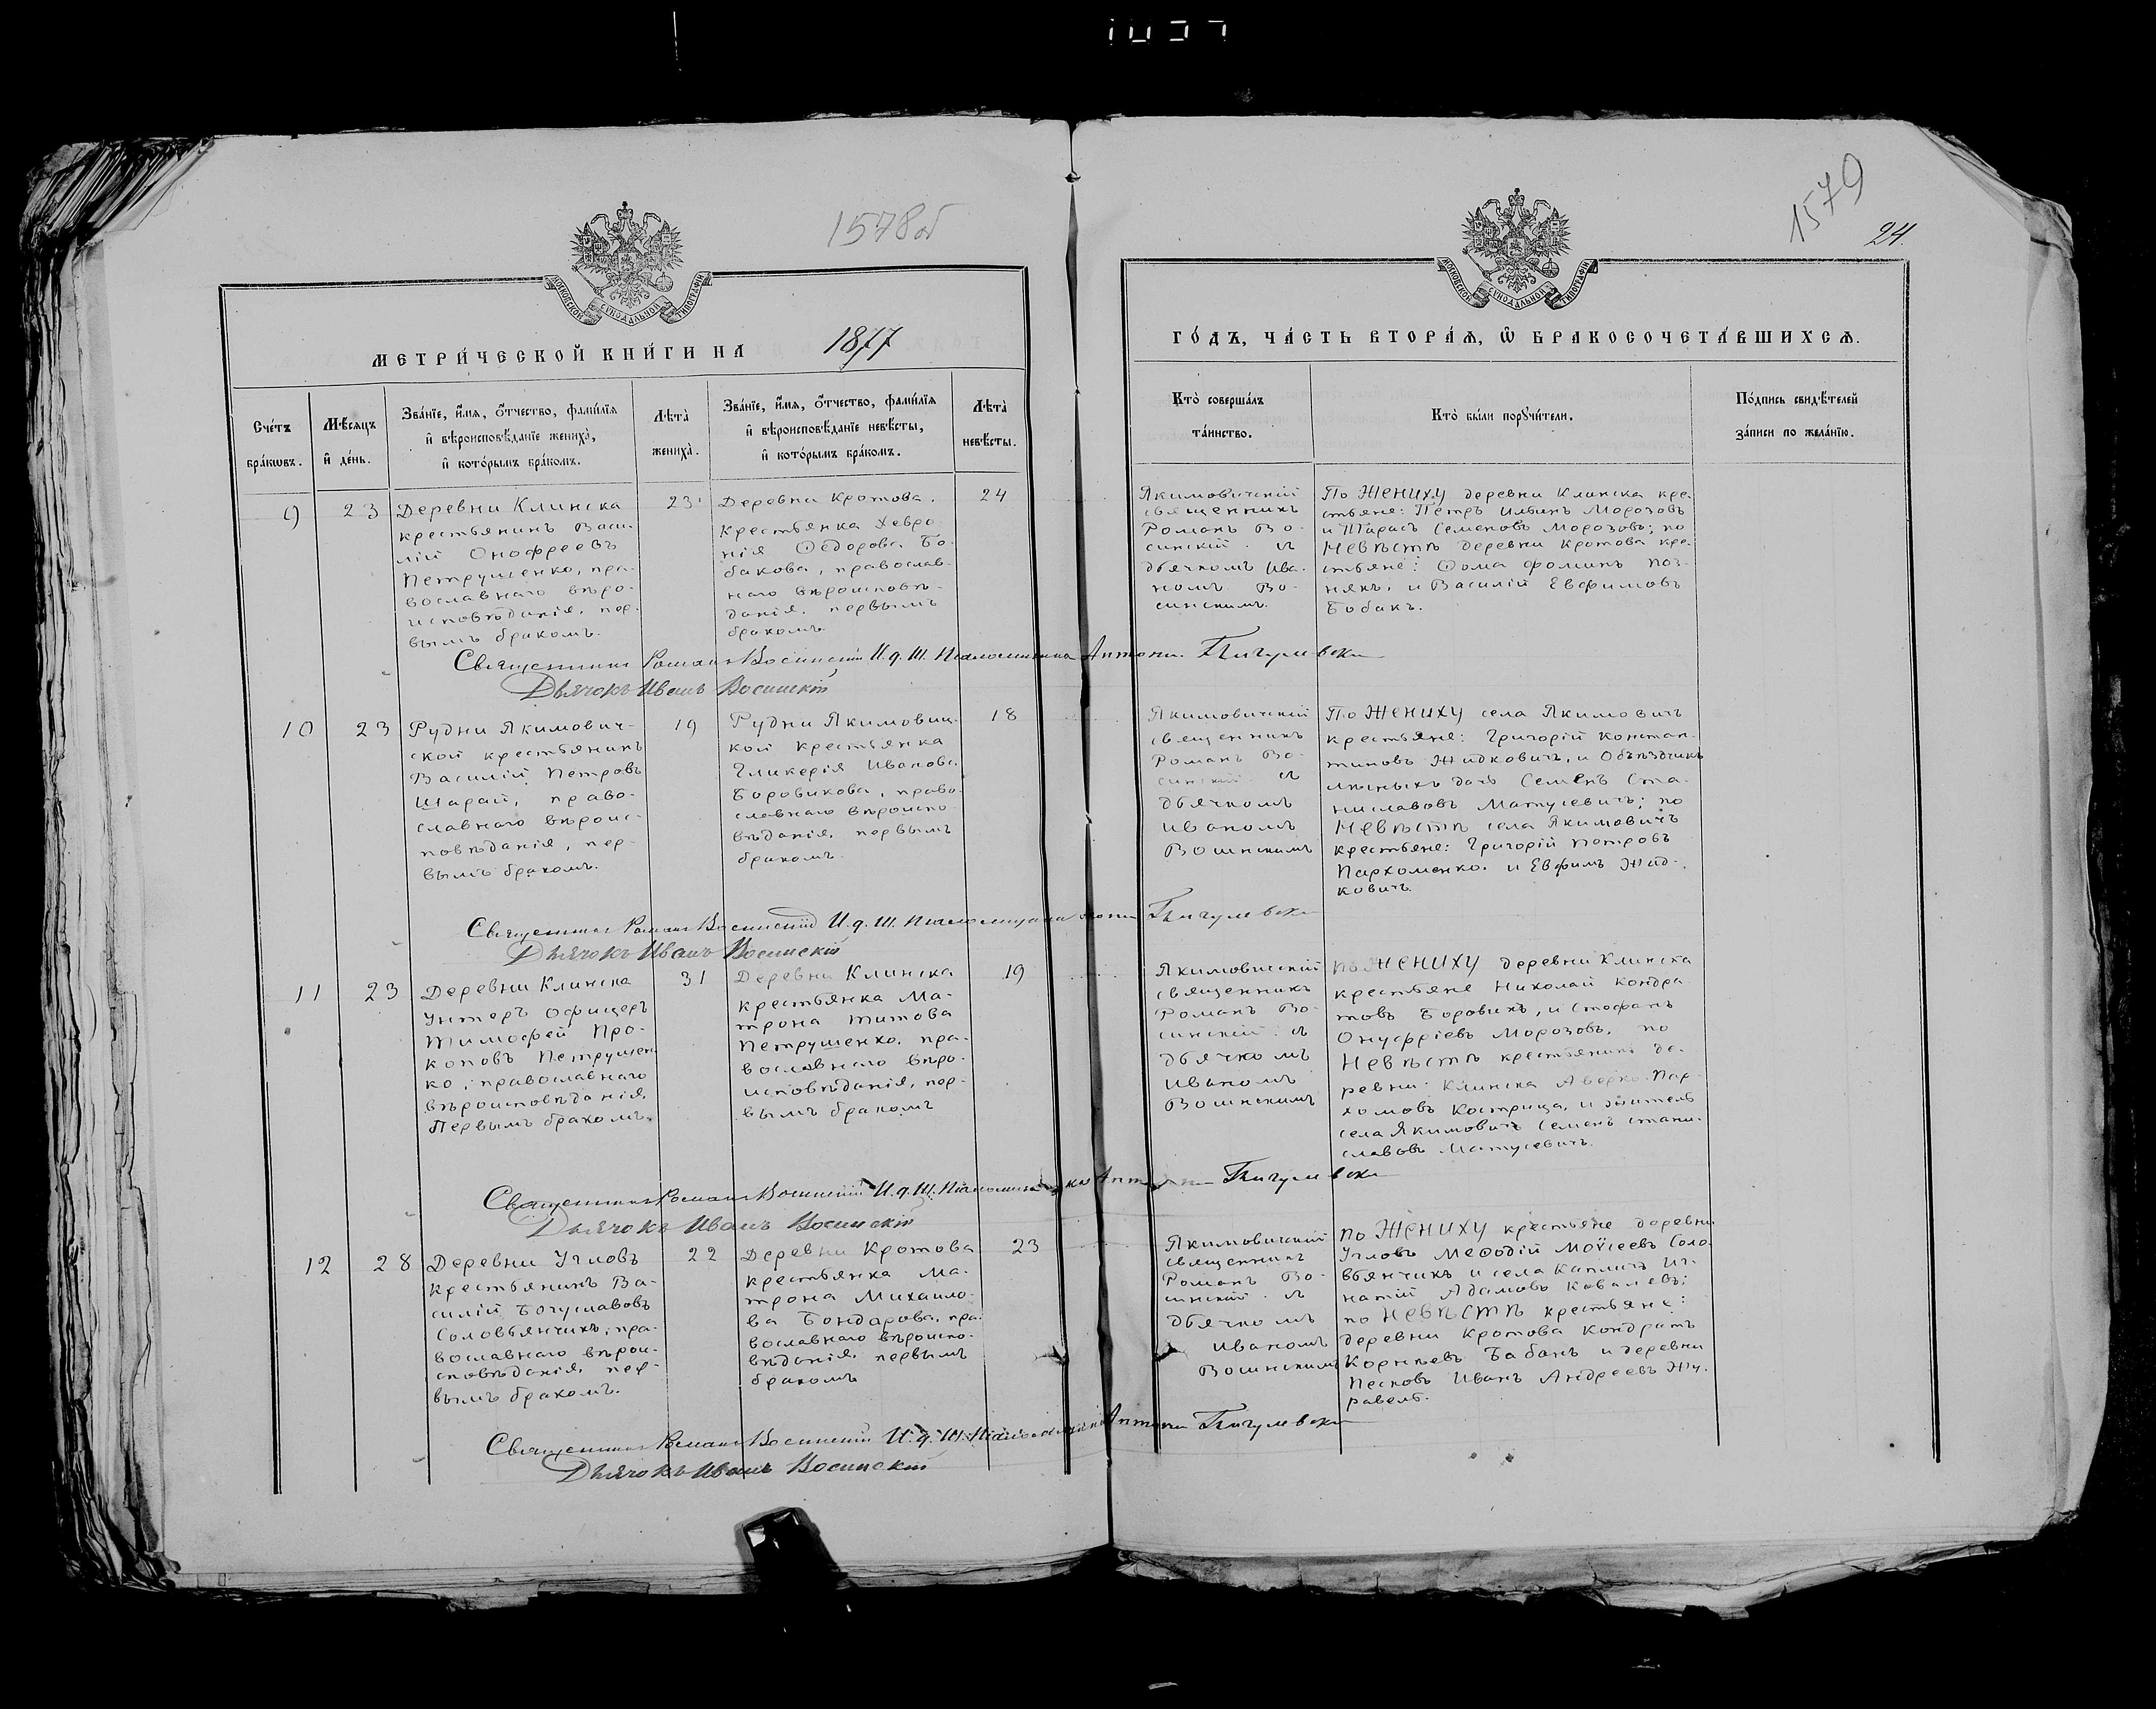 1578об
1579
24.
МОСКОВСКОЙ СѴНОДАЛЬНОЙ ТИПОГРАФІИ
МОСКОВСКОЙ СѴНОДАЛЬНОЙ ТИПОГРАФІИ
МЕТРИ́ЧЕСКОЙ КНИ́ГИ НА 1877
ГО́ДЪ, ЧА́СТЬ ВТОРА́Я, Ѡ҆ БРАКОСОЧЕТА́ВШИХСЯ.
Сче́тъ
бра́кωвъ.
Мѣ́сяцъ
и҆ де́нь.
Зва́нїе, и҆́мя, ѻ҆́тчество, фами́лїя
и҆ вѣроисповѣ́данїе жениха̀,
и҆ кото́рымъ бра́комъ.
Лѣта̀
жениха̀.
Зва́нїе, и҆́мя, ѻ҆́тчество, фами́лїя
и҆ вѣроисповѣ́данїе невѣ́сты,
и҆ кото́рымъ бра́комъ.
Лѣта̀
невѣ́сты.
Кто̀ соверша́лъ
та́инство.
Кто̀ бы́ли порꙋчи́тели.
По́дпись свидѣ́телей
за́писи по жела́нїю.
9
23
Деревни Клинска
крестьянинъ Васи-
лій Онофреевъ
Петрушенко, пра-
вославнаго вѣро-
исповѣданія, пер-
вымъ бракомъ.
23
Деревни Кротова.
крестьянка Хевро-
нія Ѳедорова Бо-
бакова, православ-
наго вѣроисповѣ-
данія, первымъ
бракомъ.
24
Якимовичскій
священникъ
Романъ Во-
синскій. съ
дьячкомъ Ива-
номъ Во-
синскимъ.
По Жениху деревни Клинска кре-
стьяне: Петръ Ильинъ Морозовъ
и Тарасъ Семеновъ Морозовъ; по
Невѣстѣ деревни Кротова кре-
стьяне: Ѳома Фоминъ Поз-
някъ, и Василій Евфимовъ
Бобакъ.
Священникъ Романъ Восинскій И.д.Ш. Псаломщика Антони Пигулевски
Дьячокъ Иванъ Восинскій
10
23
Рудни Якимович-
ской крестьянинъ
Василій Петровъ
Шарай, право-
славнаго вѣроис-
повѣданія, пер-
вымъ бракомъ.
19
Рудни Якимович-
кой крестьянка
Гликерія Иванова
Боровикова, право-
славнаго вѣроиспо-
вѣданія, первымъ
бракомъ.
18
Якимовичскій
священникъ
Романъ Во-
синскій съ
дьячкомъ
Иваномъ
Восинскимъ
По Жениху села Якимовичъ
крестьяне: Григорій Констан-
тиновъ Жидковичъ, и Объѣздчикъ
лѣсныхъ дачъ Семенъ Ста-
ниславовъ Матусевичъ; по
Невѣстѣ села Якимовичъ
крестьяне: Григорій Петровъ
Пархоменко. и Евфимъ Жид-
ковичъ.
Священникъ Романъ Восинскій И.д.Ш. Псаломщика Антони Пигулевски
Дьячокъ Иванъ Восинскій
11
23
Деревни Клинска
Унтеръ Офицеръ
Тимофей Про-
коповъ Петрушен-
ко, православнаго
вѣроисповѣданія,
Первымъ бракомъ.
31
Деревни Клинска
крестьянка Ма-
трона Титова
Петрушенко, пра-
вославнаго вѣро-
исповѣданія, пер-
вымъ бракомъ
19
Якимовичскій
священникъ
Романъ Во-
синскій. съ
дьячкомъ
Иваномъ
Восинскимъ
По Жениху деревни Клинска
крестьяне Николай Кондра-
товъ Боровикъ, и Стефанъ
Онуфріевъ Морозовъ, по
Невѣстѣ крестьянинъ де-
ревни: Клинска Аверко Пар-
хомовъ Кострица, и житель
села Якимовичъ Семенъ Стани-
славовъ Матусевичъ.
Священникъ Романъ Восинскій И.д.Ш. Псаломщика Антони Пигулевски
Дьячокъ Иванъ Восинскій
12
28
Деревни Угловъ
Крестьянинъ Ва-
силій Богуславовъ
Соловьянчикъ, пра-
вославнаго вѣрои-
сповѣданія, пер-
вымъ бракомъ.
22
Деревни Кротова
крестьянка Ма-
трона Михаило-
ва Бондарова, пра-
вославнаго вѣроиспо-
вѣданія, первымъ
бракомъ
23
Якимовичскій
священникъ
Романъ Во-
синскій. съ
дьячкомъ
Иваномъ
Восинскимъ
По Жениху крестьяне деревни
Угловъ Меѳодій Моѵсеевъ Соло-
вьянчикъ и села Капличъ Иг-
натій Адамовъ Ковалевъ;
по Невѣстѣ крестьяне:
деревни Кротова Кондратъ
Корнѣевъ Бабакъ и деревни
Песковъ Иванъ Андреевъ Жу-
равель.
Священникъ Романъ Восинскій И.д.Ш. Псаломщика Антони Пигулевски
Дьячокъ Иванъ Восинскій